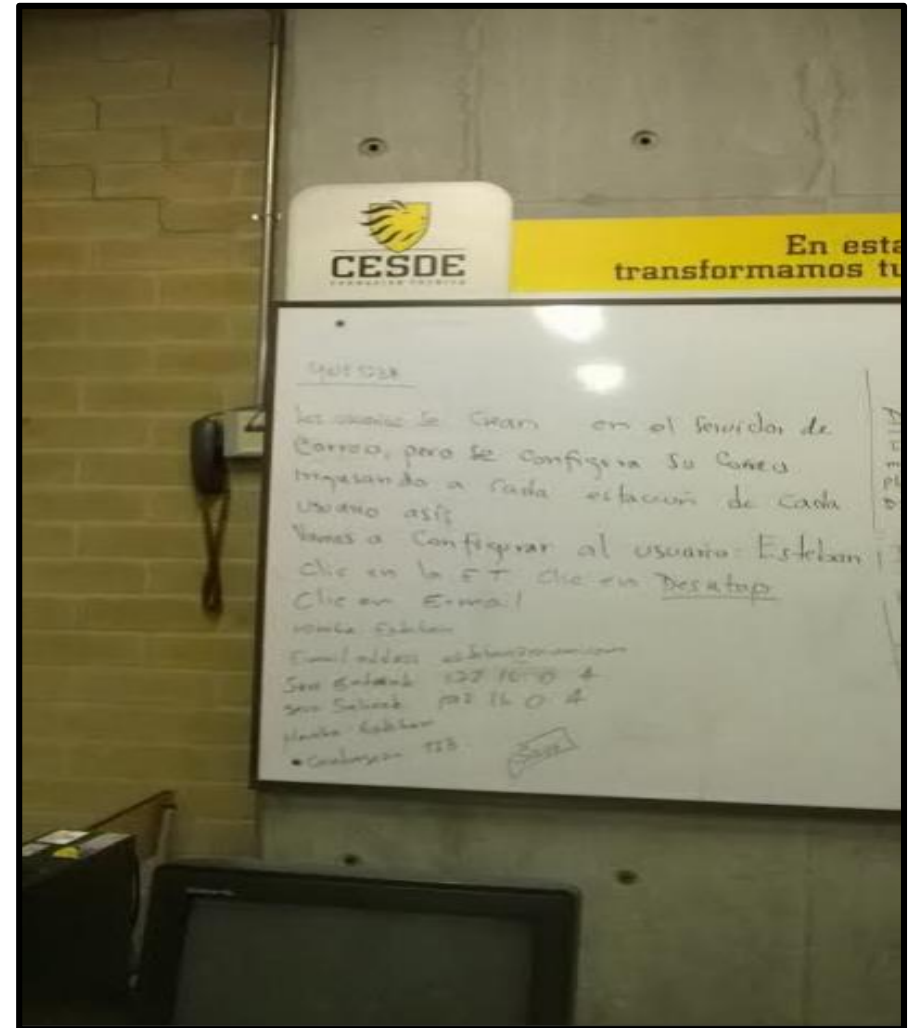 CESDE
En esta
transformamos tu
Los usuarios se crean en el servidor de
Correo, pero se configura su Correo
ingresando a cada estación de cada
usuario así:
Vamos a Configurar al usuario Esteban
Clic en la ET Clic en Desktop
Clic en E-mail
nombre Esteban
Email address
172 16 0 4
172 16 0 4
Esteban
123
Save